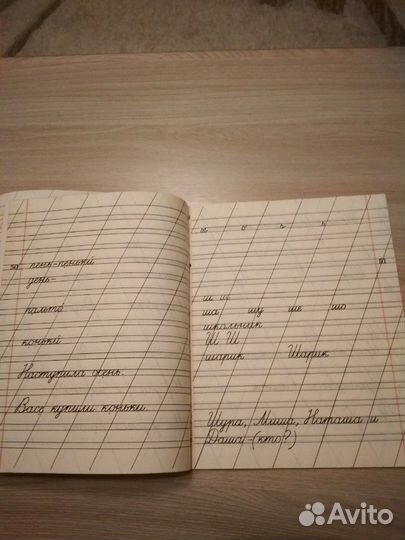 50 пень-пеньки
день-
пальто
коньки
Наступила осень.
Васе купили коньки.
51
ша шу ше шо
школьник
Ш Ш
шарик Шарик
Шура, Миша, Наташа и
Даша -(кто?)
Avito